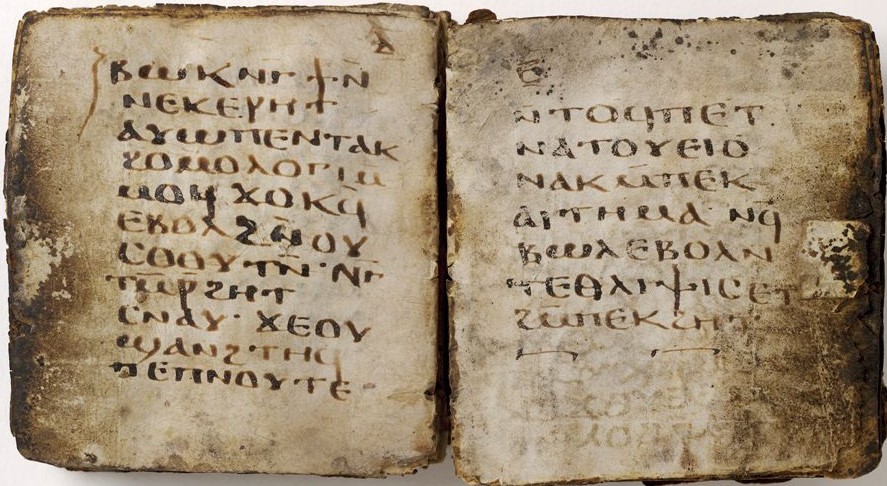 ⲃⲱⲕ ⲛⲅϯ ⲛ̄
ⲛⲉⲕⲉⲣⲏⲧ
ⲁⲩⲱ ⲡⲉⲛⲧⲁⲕ
ϩⲟⲙⲟⲗⲟⲅⲓ ⲙ
ⲙⲟϥ ϫⲟⲕϥ̄
ⲉⲃⲟⲗ ϩⲛ̄ ⲟⲩ
ⲥⲟⲟⲩⲧⲛ̄· ⲛⲅ
ⲧⲙ̄ⲣ̄ϩⲏⲧ
ⲥⲛⲁⲩ· ϫⲉ ⲟⲩ
ϣⲁⲛϩⲧⲏϥ
ⲡⲉ ⲡⲛⲟⲩⲧⲉ·
ⲛ̄ⲧⲟϥ ⲡⲉⲧ
ⲛⲁⲧⲟⲩⲉⲓⲟ
ⲛⲁⲕ ⲙ̄ⲡⲉⲕ
ⲁⲓⲧⲏⲙⲁ· ⲛϥ̄
ⲃⲱⲗ ⲉⲃⲟⲗ ⲛ
ⲧⲉⲑⲗⲓⲯⲓⲥ ⲉⲧ
ϩⲙ̄ ⲡⲉⲕϩⲏⲧ·